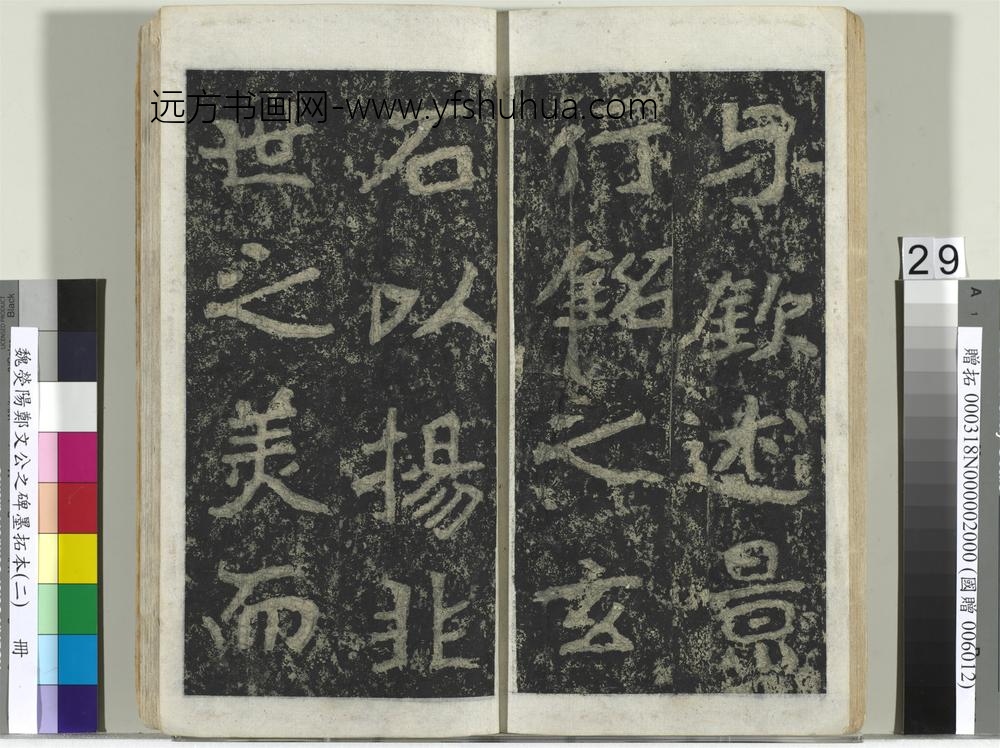 远方书画网-www.yfshuhua.com
与欽述景
行銘之玄
石以揚非
世之美而
29
魏滎陽鄭文公之碑墨拓本(二) 冊
贈拓 000318N000002000 (國贈 006012)
Black
A 1